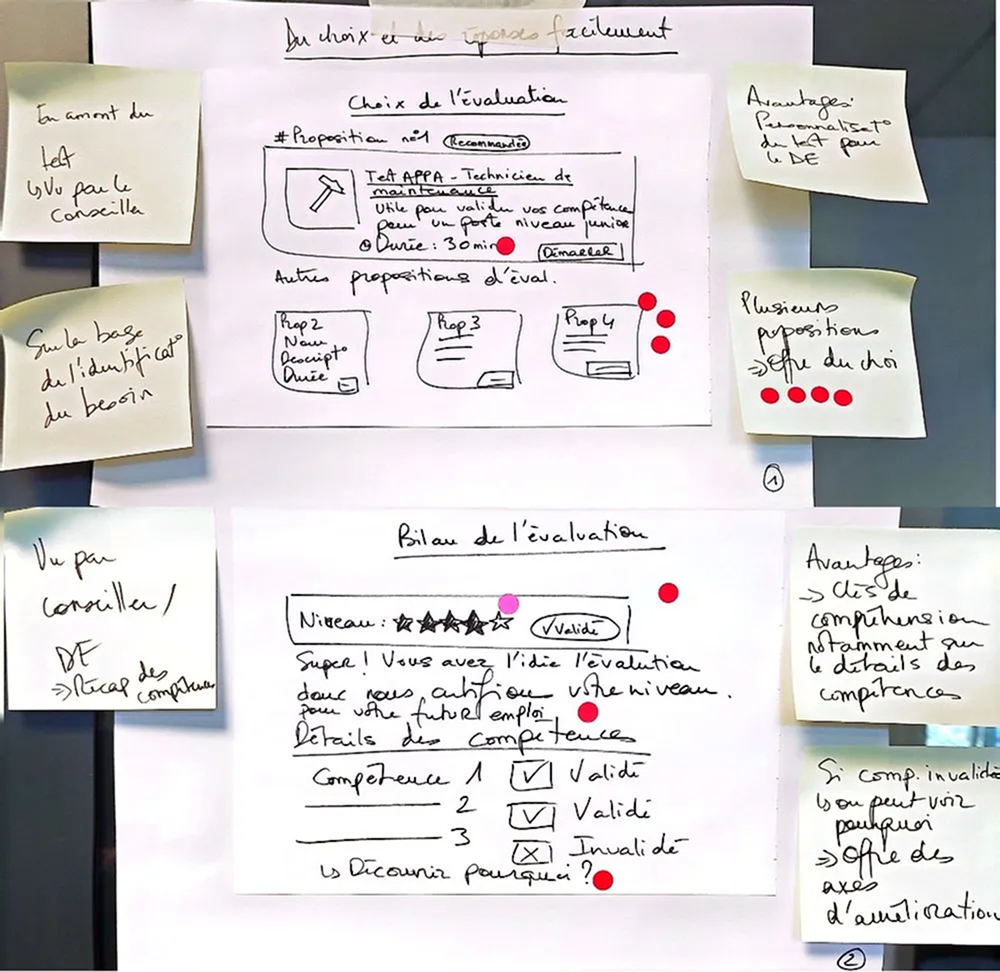 Du choix et des réponses facilement
En amont du
test
↳ Vu par le
Conseiller
Sur la base
de l'identificat°
du besoin
Choix de l'évaluation
#Proposition n°1 Recommandée
Test APPA - Technicien de
maintenance
Utile pour valider vos compétences
pour un poste niveau junior
Durée : 30 min
Démarrer
Autres propositions d'éval.
Prop 2
Nom
Descript°
Durée
Prop 3
Prop 4
Avantages:
Personnalisat°
du test pour
le DE
Plusieurs
propositions
=> Offre du choi
1
Vu par
conseiller /
DE
=> Récap des
compétences
Bilan de l'évaluation
Niveau : ☆★★★☆ ✓ Validé
Super ! Vous avez l'idée l'évalution
donc nous certifions votre niveau.
pour votre futur emploi
Détails des compétences
Compétence 1 ☑ Validé
2 ☑ Validé
3 ☒ Invalidé
↳ Découvrir pourquoi ?
Avantages:
-> Clés de
compréhension
notamment sur
le détails des
compétences
Si comp. invalidée
↳ on peut voir
pourquoi
=> Offre des
axes
d'amélioration
2